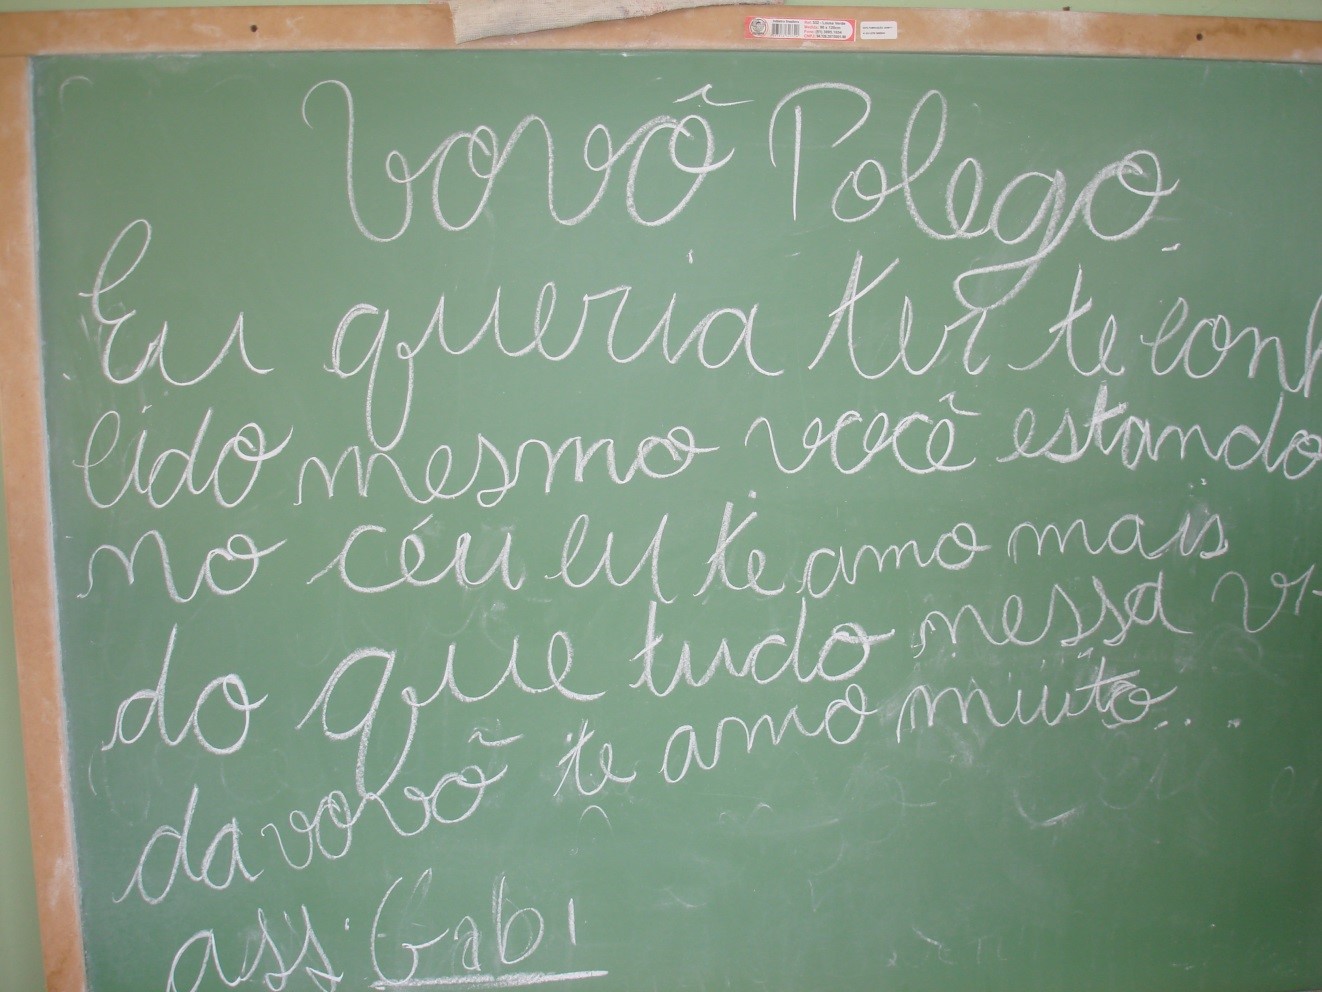 vovô Polego
Eu queria ter te conh
cido mesmo você estando
no céu eu te amo mais
do que tudo nessa vi-
da vovô te amo muito...
ass: Gabi